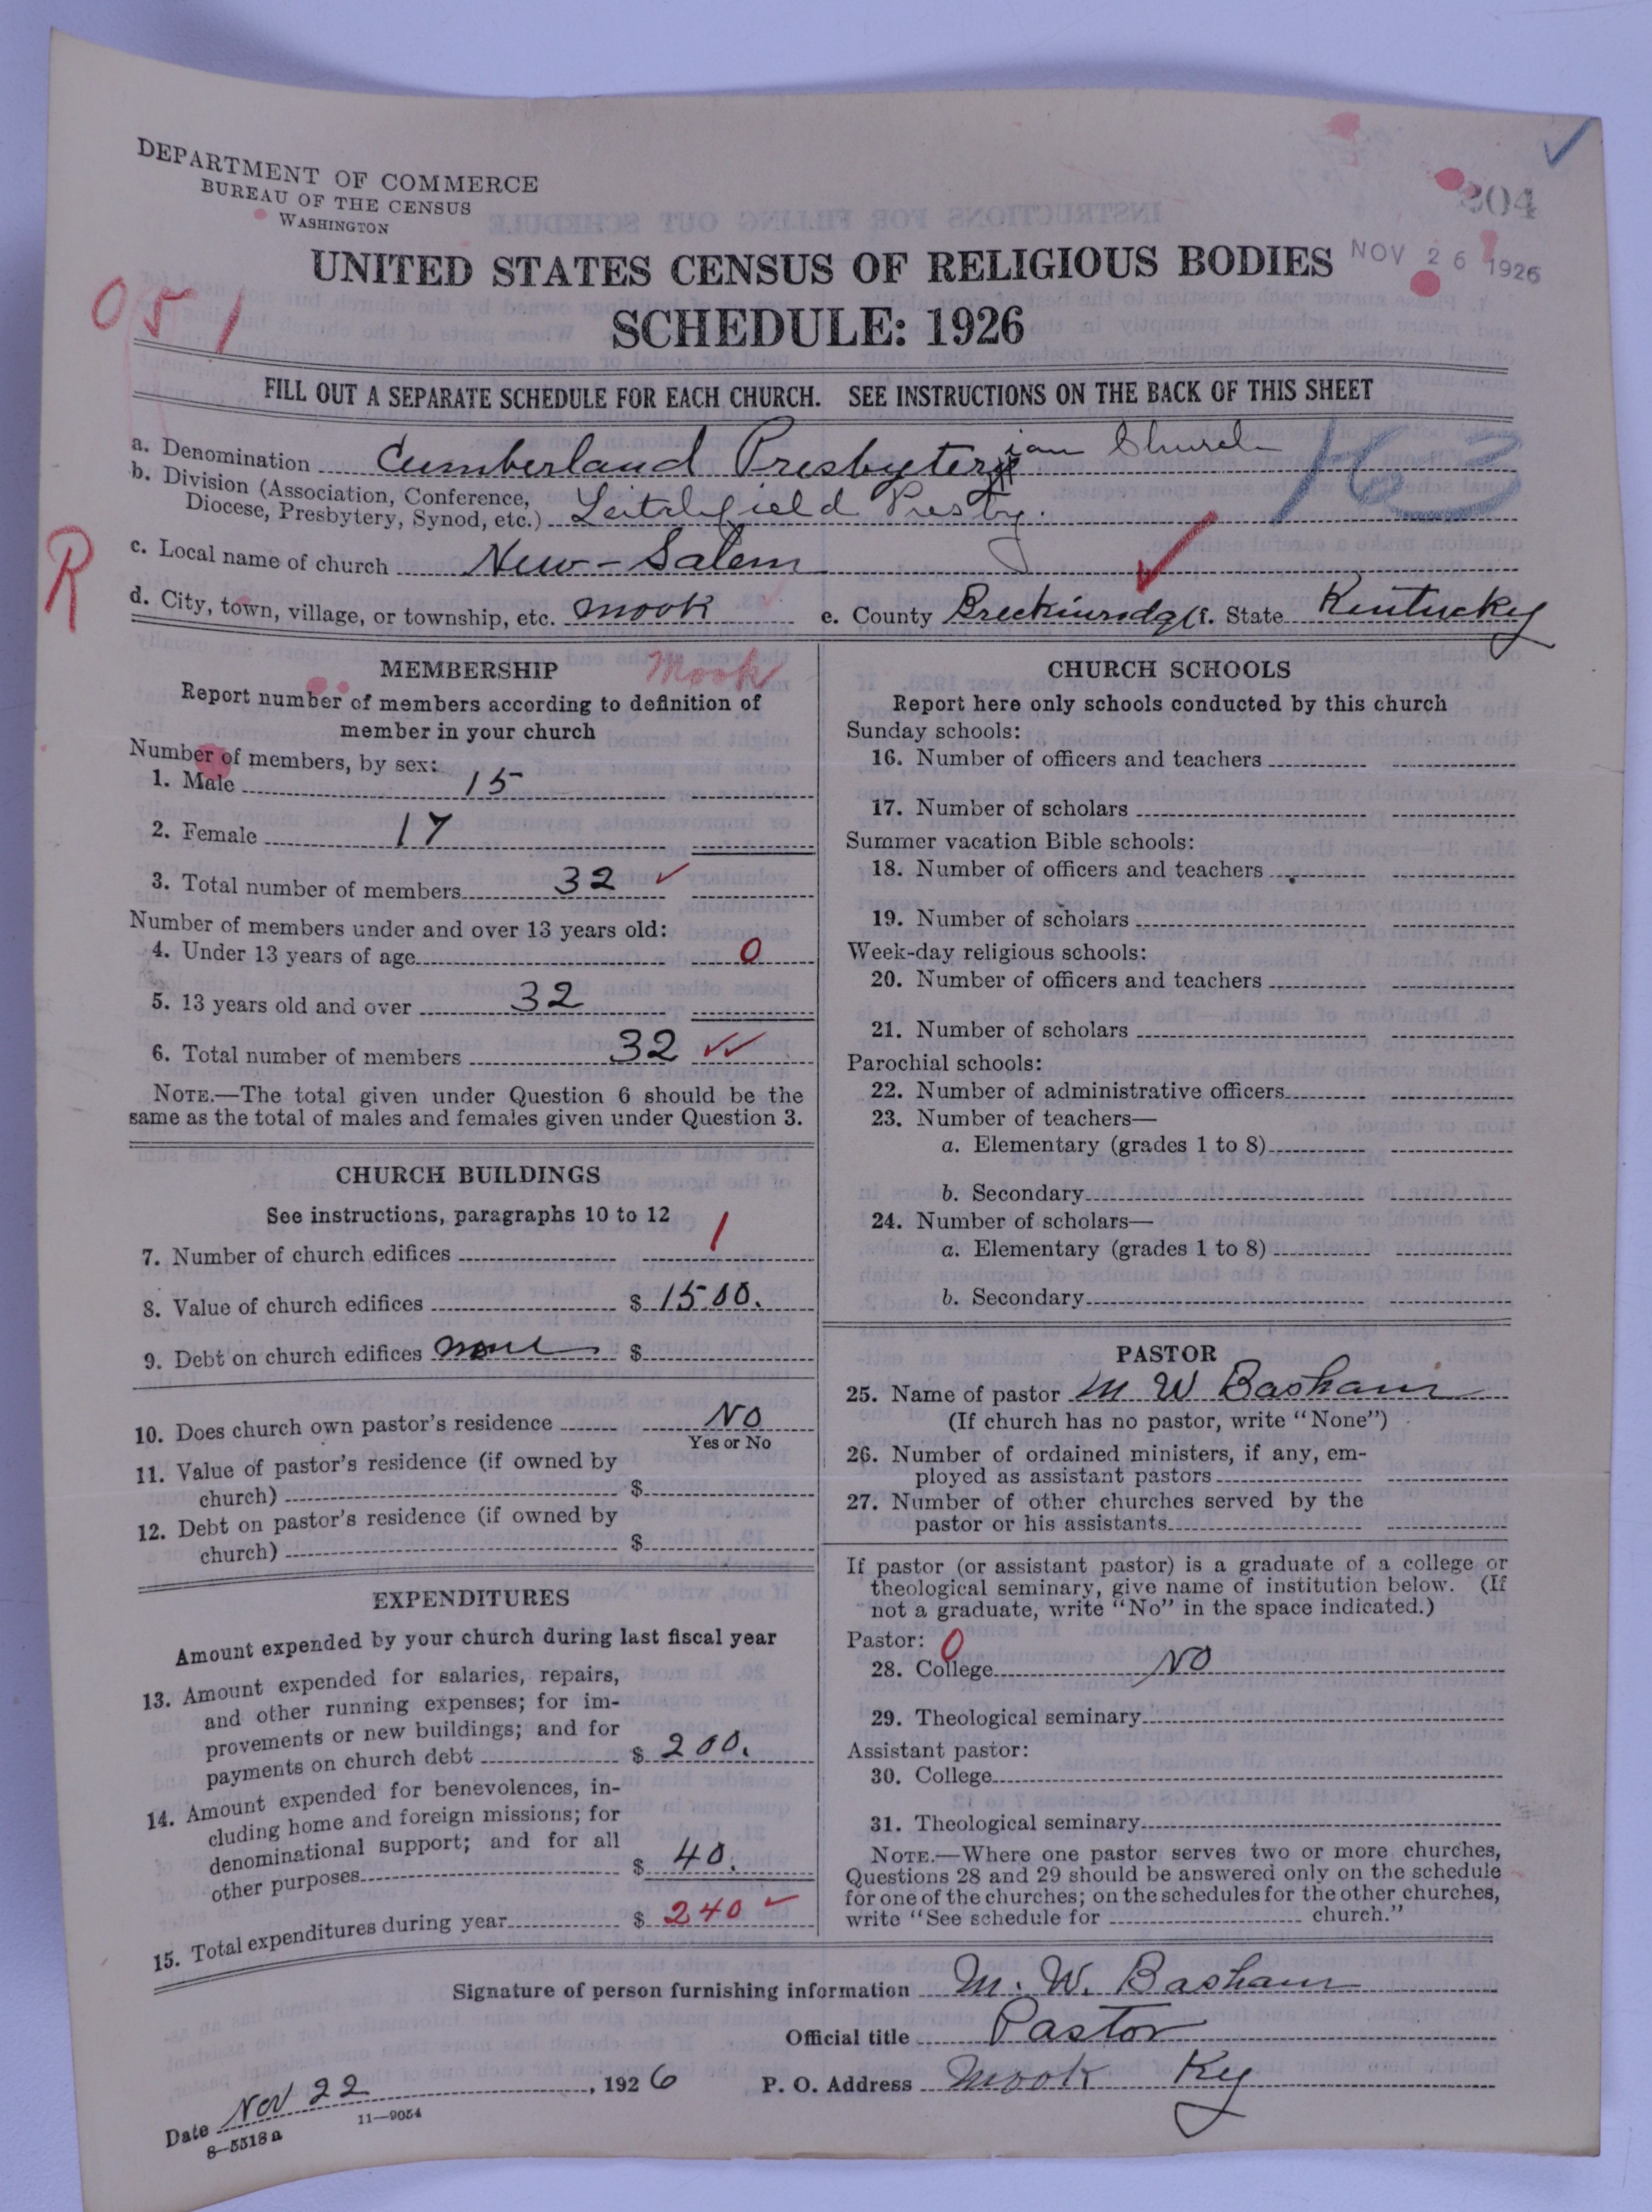 DEPARTMENT OF COMMERCE
BUREAU OF THE CENSUS
WASHINGTON
304
NOV 26 1926
UNITED STATES CENSUS OF RELIGIOUS BODIES
SCHEDULE: 1926
051
FILL OUT A SEPARATE SCHEDULE FOR EACH CHURCH. SEE INSTRUCTIONS ON THE BACK OF THIS SHEET
a. Denomination Cumberland Presbyterian Church
163
b. Division (Association, Conference,
Diocese, Presbytery, Synod, etc.) Leitchfield Presby.
R
c. Local name of church New-Salem
d. City, town, village, or township, etc. Mook e. County Breckinridge f. State Kentucky
MEMBERSHIP
Mook
Report number of members according to definition of
member in your church
Number of members, by sex:
1. Male 15
2. Female 17
3. Total number of members 32 ✓
Number of members under and over 13 years old:
4. Under 13 years of age 0
5. 13 years old and over 32
6. Total number of members 32 ✓✓
NOTE.—The total given under Question 6 should be the
same as the total of males and females given under Question 3.
CHURCH BUILDINGS
See instructions, paragraphs 10 to 12
7. Number of church edifices 1
8. Value of church edifices $ 1500.
9. Debt on church edifices none $
10. Does church own pastor's residence No
Yes or No
11. Value of pastor's residence (if owned by
church) $
12. Debt on pastor's residence (if owned by
church) $
EXPENDITURES
Amount expended by your church during last fiscal year
13. Amount expended for salaries, repairs,
and other running expenses; for im-
provements or new buildings; and for
payments on church debt $ 200.
14. Amount expended for benevolences, in-
cluding home and foreign missions; for
denominational support; and for all
other purposes $ 40.
15. Total expenditures during year $ 240 ✓
CHURCH SCHOOLS
Report here only schools conducted by this church
Sunday schools:
16. Number of officers and teachers
17. Number of scholars
Summer vacation Bible schools:
18. Number of officers and teachers
19. Number of scholars
Week-day religious schools:
20. Number of officers and teachers
21. Number of scholars
Parochial schools:
22. Number of administrative officers
23. Number of teachers—
a. Elementary (grades 1 to 8)
b. Secondary
24. Number of scholars—
a. Elementary (grades 1 to 8)
b. Secondary
PASTOR
25. Name of pastor M W Basham
(If church has no pastor, write "None")
26. Number of ordained ministers, if any, em-
ployed as assistant pastors
27. Number of other churches served by the
pastor or his assistants
If pastor (or assistant pastor) is a graduate of a college or
theological seminary, give name of institution below. (If
not a graduate, write "No" in the space indicated.)
Pastor: 0
28. College No
29. Theological seminary
Assistant pastor:
30. College
31. Theological seminary
NOTE.—Where one pastor serves two or more churches,
Questions 28 and 29 should be answered only on the schedule
for one of the churches; on the schedules for the other churches,
write "See schedule for church."
Signature of person furnishing information M. W. Basham
Official title Pastor
Date Nov 22, 1926 P. O. Address Mook Ky
8-5518a 11-9054